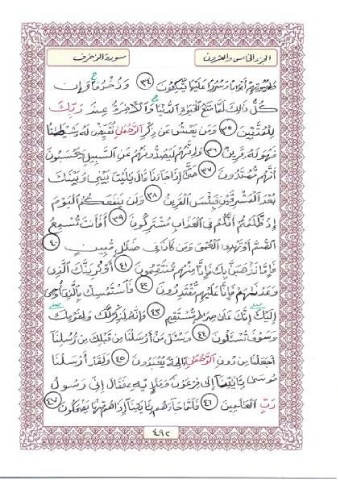 الجزء الخامس والعشرون سورة الزخرف
ولبيوتهم أبوابا وسررا عليها يتكئون ٣٤ وزخرفا وإن
كل ذلك لما متع الحيوة الدنيا والآخرة عند ربك
للمتقين ٣٥ ومن يعش عن ذكر الرحمن نقيض له شيطنا
فهو له قرين ٣٦ وإنهم ليصدونهم عن السبيل ويحسبون
أنهم مهتدون ٣٧ حتى إذا جاءنا قال يليت بيني وبينك
بعد المشرقين فبئس القرين ٣٨ ولن ينفعكم اليوم
إذ ظلمتم أنكم في العذاب مشتركون ٣٩ أفأنت تسمع
الصم أو تهدي العمي ومن كان في ضلل مبين ٤٠
فإما نذهبن بك فإنا منهم منتقمون ٤١ أو نرينك الذي
وعدنهم فإنا عليهم مقتدرون ٤٢ فاستمسك بالذي أوحي
إليك إنك على صراط مستقيم ٤٣ وإنه لذكر لك ولقومك
وسوف تسئلون ٤٤ وسئل من أرسلنا من قبلك من رسلنا
أجعلنا من دون الرحمن ءالهة يعبدون ٤٥ ولقد أرسلنا
موسى بئايتنا إلى فرعون وملإيه فقال إني رسول
رب العلمين ٤٦ فلما جاءهم بئايتنا إذا هم منها يضحكون ٤٧
٤٩٢